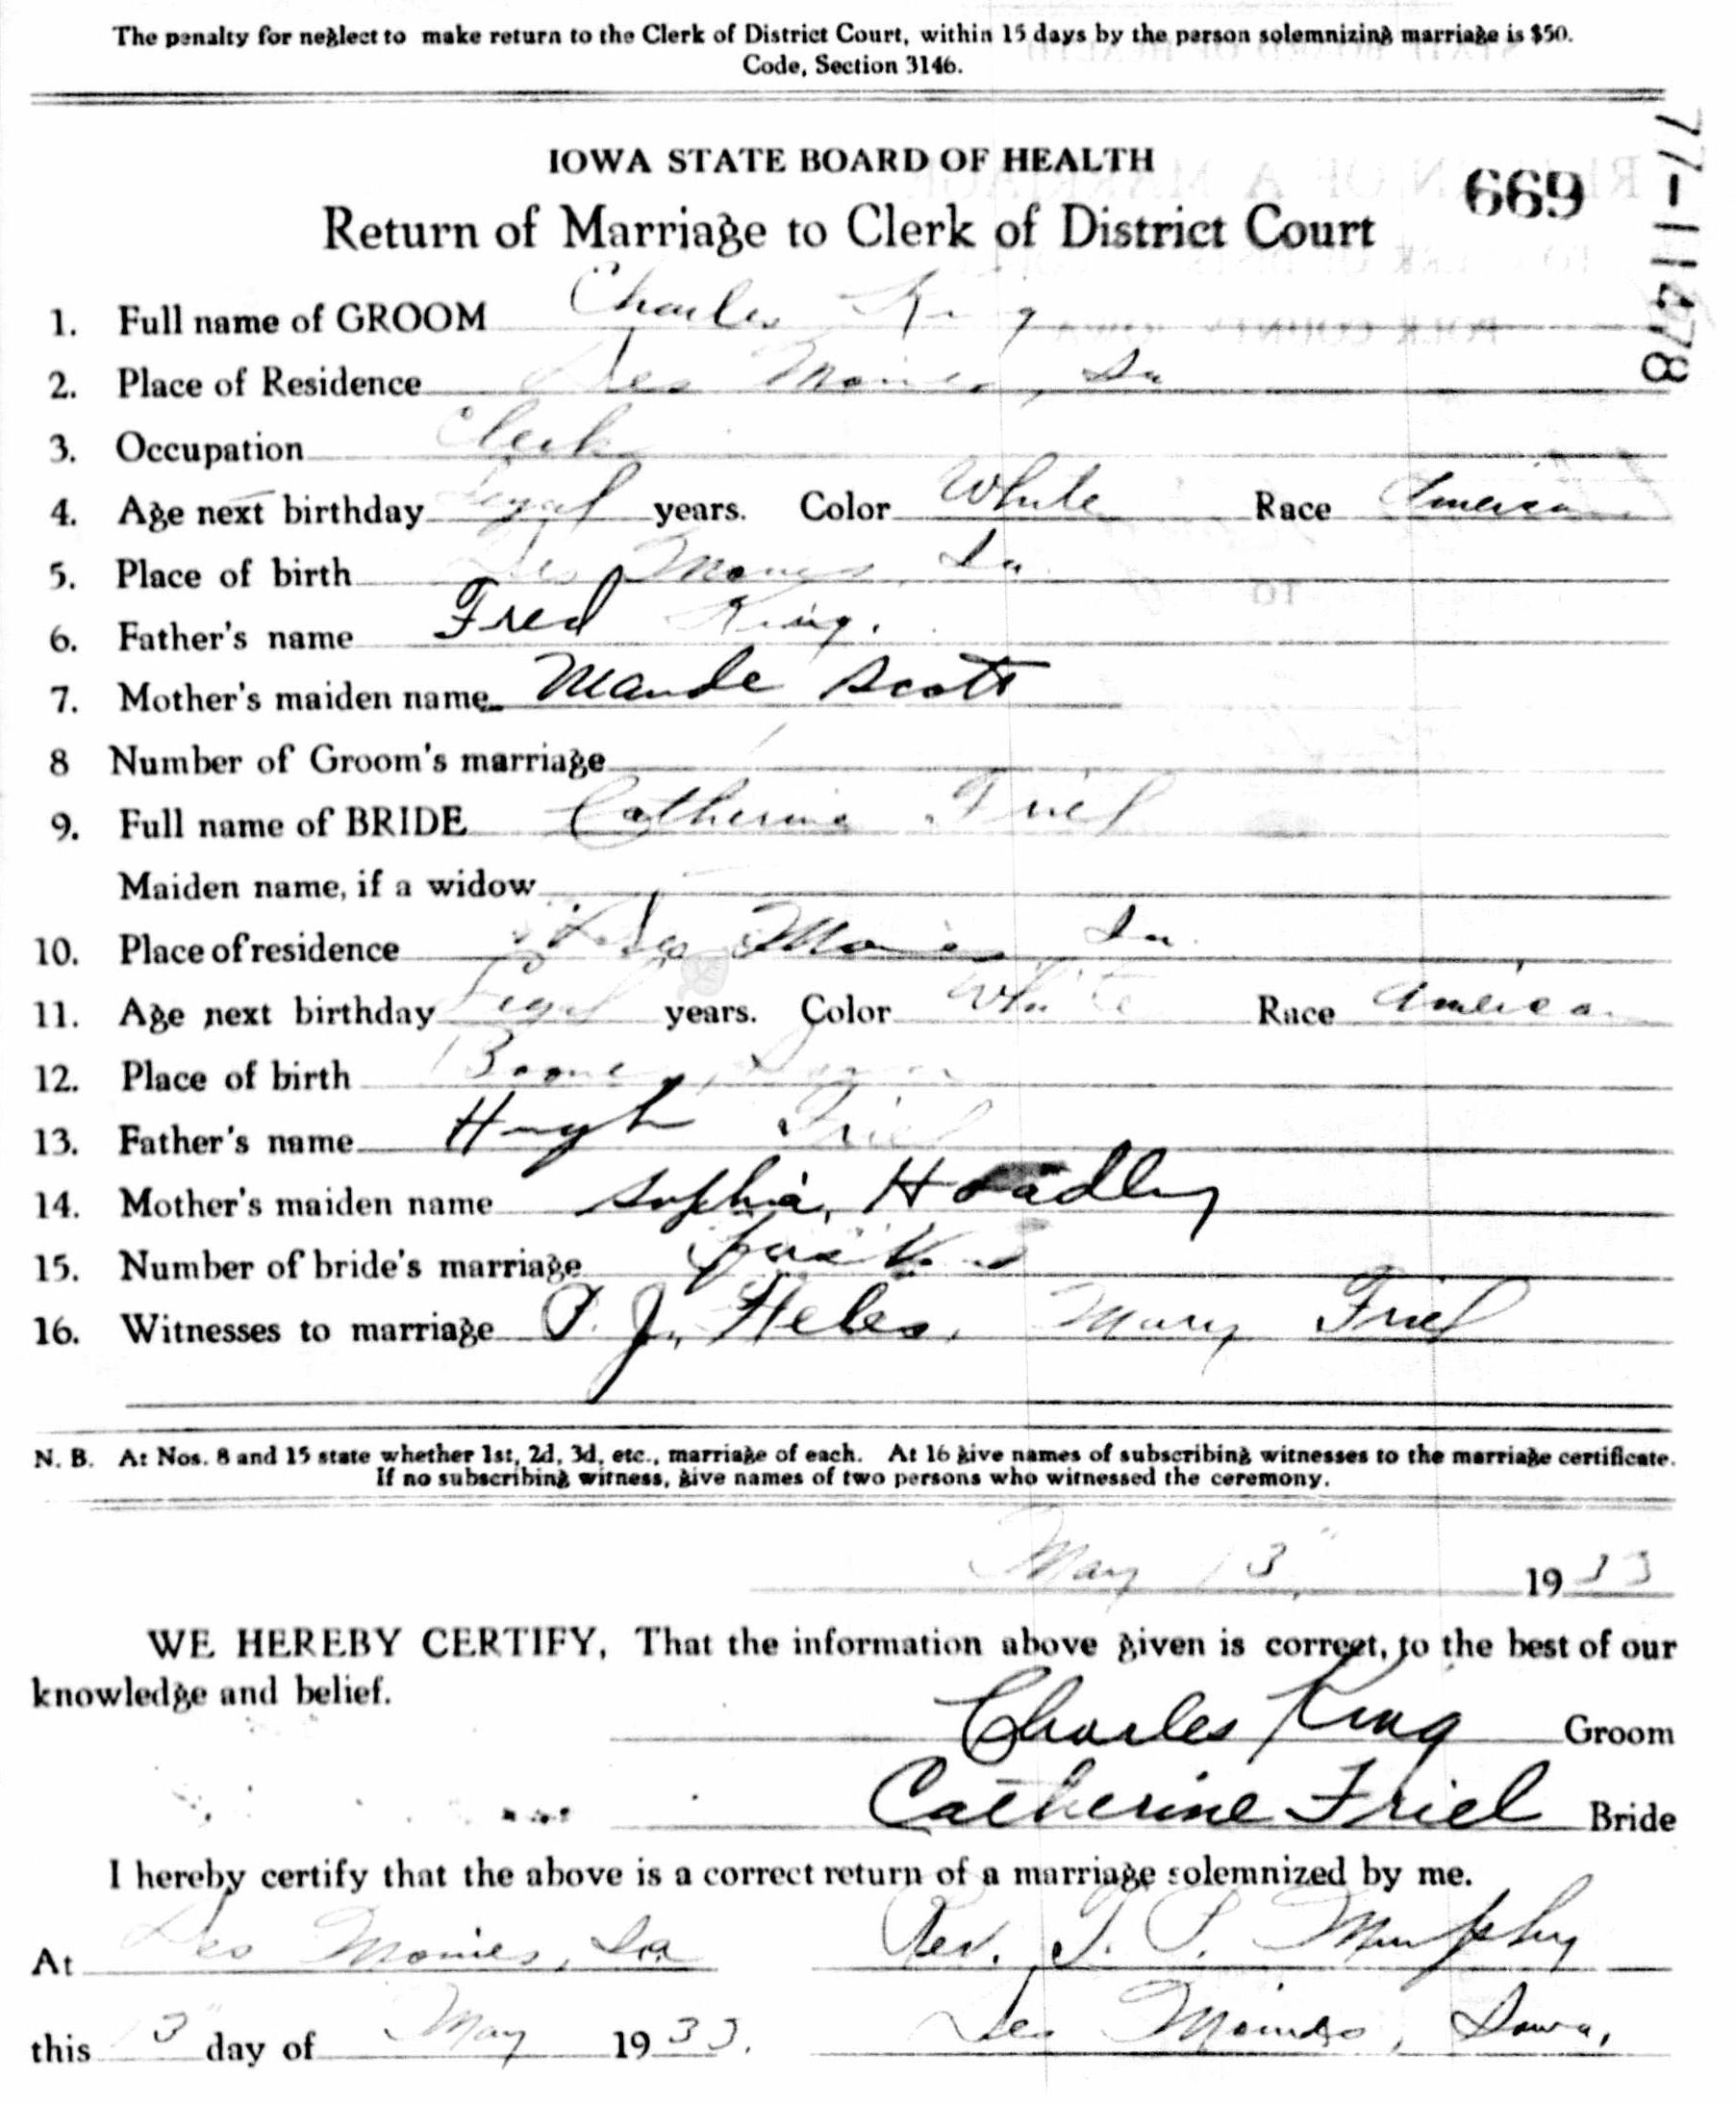 The penalty for neglect to make return to the Clerk of District Court, within 15 days by the person solemnizing marriage is $50.
Code, Section 3146.
IOWA STATE BOARD OF HEALTH
669
Return of Marriage to Clerk of District Court
1. Full name of GROOM Charles King
2. Place of Residence Des Moines, Ia
3. Occupation Clerk
4. Age next birthday Legal years. Color White Race American
5. Place of birth Des Moines, Ia
6. Father's name Fred King.
7. Mother's maiden name Maude Scott
8 Number of Groom's marriage
9. Full name of BRIDE Catherine Friel
Maiden name, if a widow
10. Place of residence Des Moines Ia
11. Age next birthday Legal years. Color White Race American
12. Place of birth Boone, Iowa
13. Father's name Hugh Friel
14. Mother's maiden name Sophia Hoadley
15. Number of bride's marriage
16. Witnesses to marriage J. Mary Friel
N. B. At Nos. 8 and 15 state whether 1st, 2d, 3d, etc., marriage of each. At 16 give names of subscribing witnesses to the marriage certificate.
If no subscribing witness, give names of two persons who witnessed the ceremony.
May 13" 1933
WE HEREBY CERTIFY, That the information above given is correct, to the best of our
knowledge and belief.
Charles King Groom
Catherine Friel Bride
I hereby certify that the above is a correct return of a marriage solemnized by me.
At Des Moines, Ia Rev. Murphy
this 13" day of May 1933. Des Moines, Iowa.